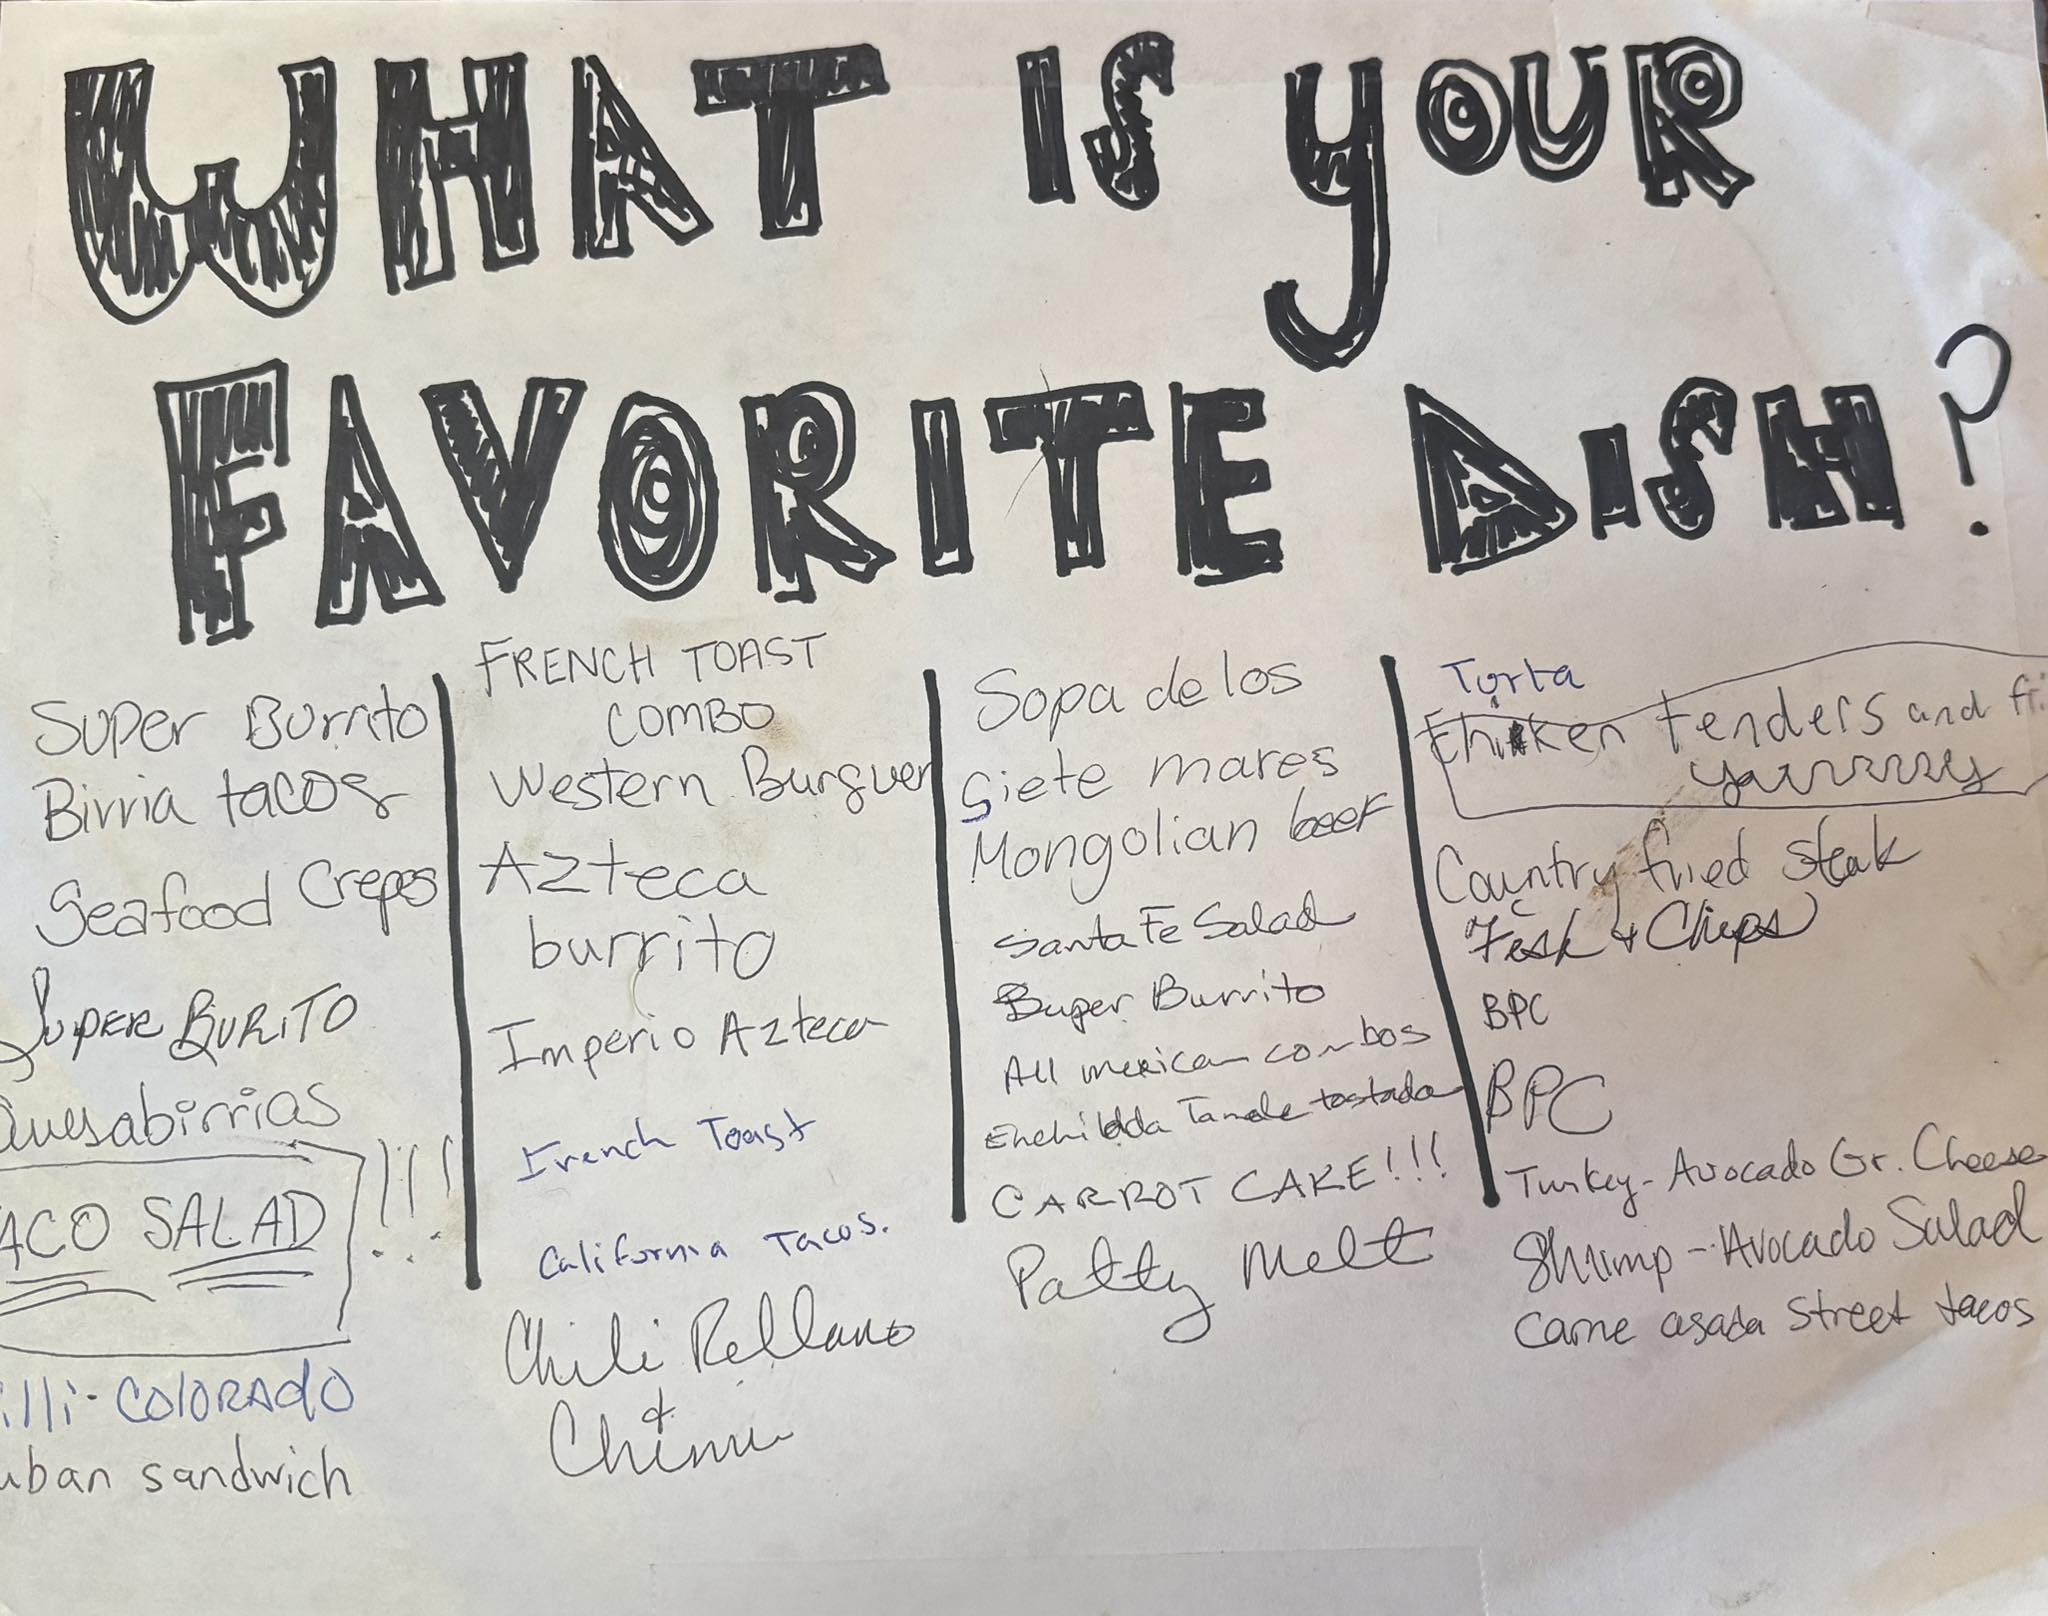 WHAT IS YOUR
FAVORITE DISH?
Super Burrito
Birria tacos
Seafood Crepes
Super BURITO
Quesabirrias
ACO SALAD !!!
illi-COLORADO
uban sandwich
FRENCH TOAST
COMBO
Western Burguer
Azteca
burrito
Imperio Azteca
French Toast
California Tacos.
Chili Rellano
&
Sopa de los
Siete mares
Mongolian beef
Santa Fe Salad
Super Burrito
All mexican combos
Enchilada Tamale tostada
CARROT CAKE!!!
Patty Melt
Torta
Chicken tenders and fri
yarrrrry
Country fried steak
Fish & Chips
BPC
BPC
Turkey-Avocado Gr. Cheese
Shrimp-Avocado Salad
Carne asada street tacos